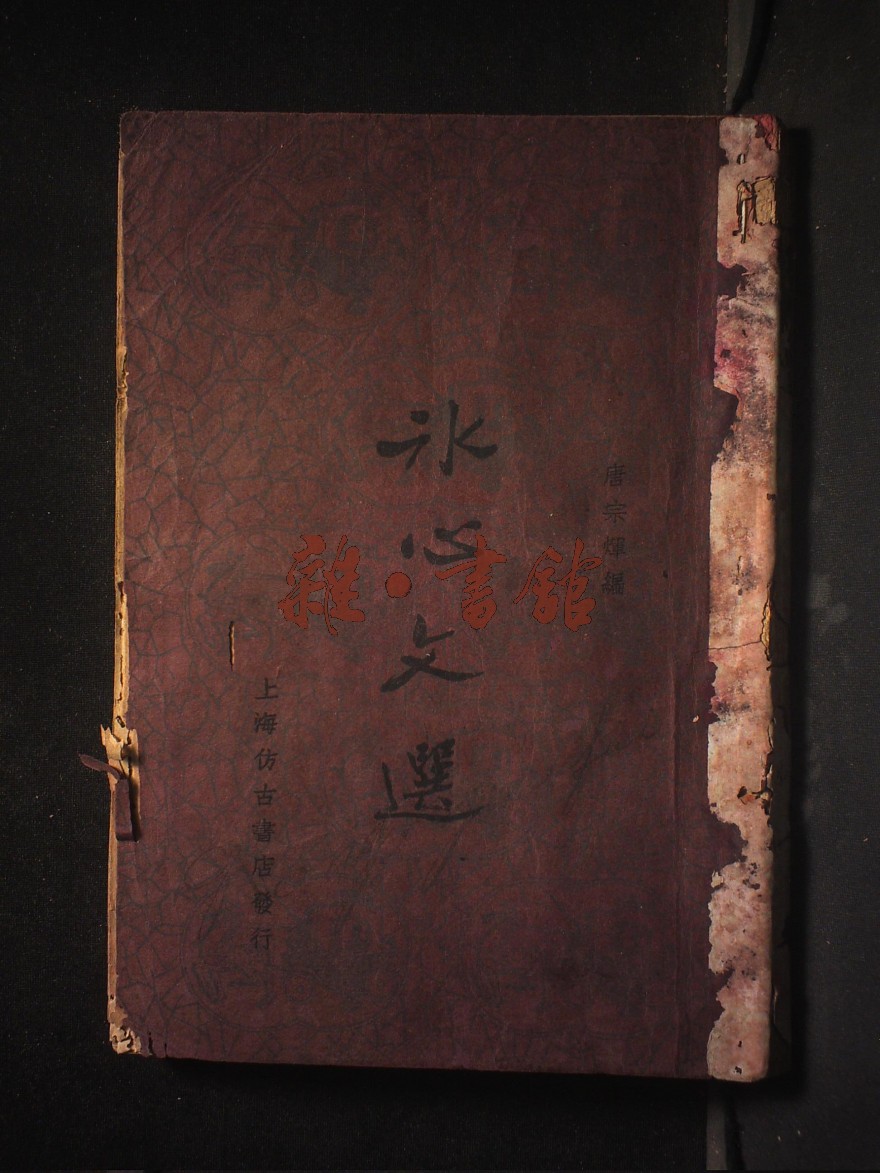 唐宗輝編
冰心文選
上海仿古書店發行
雜·書館